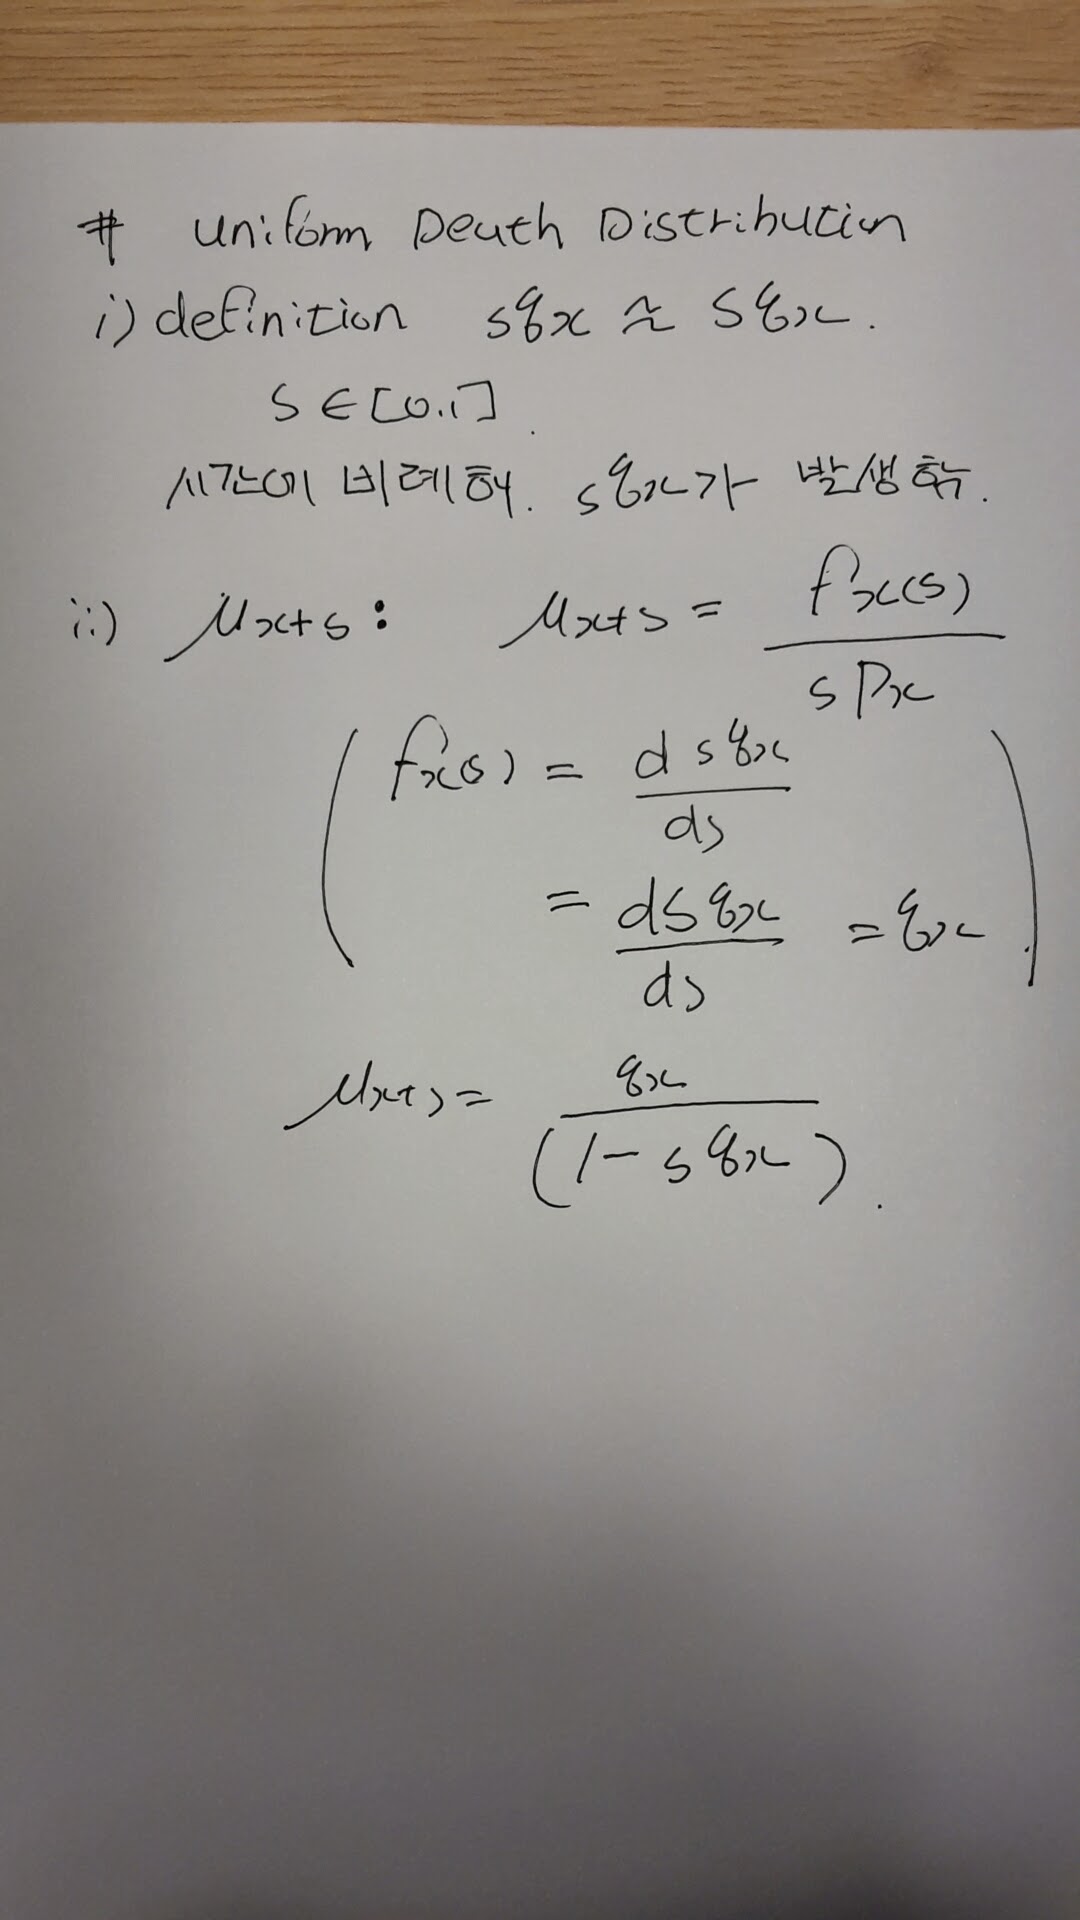 # Uniform Death Distribution
i) definition sqx ≈ Sqx.
S ∈ [0.1].
시간에 비례해. sqx가 발생한다.
ii) μx+s : μx+s = fx(s) / sPx
( fx(s) = d sqx / ds
= dSqx / ds = qx )
μx+s = qx / (1 - sqx).